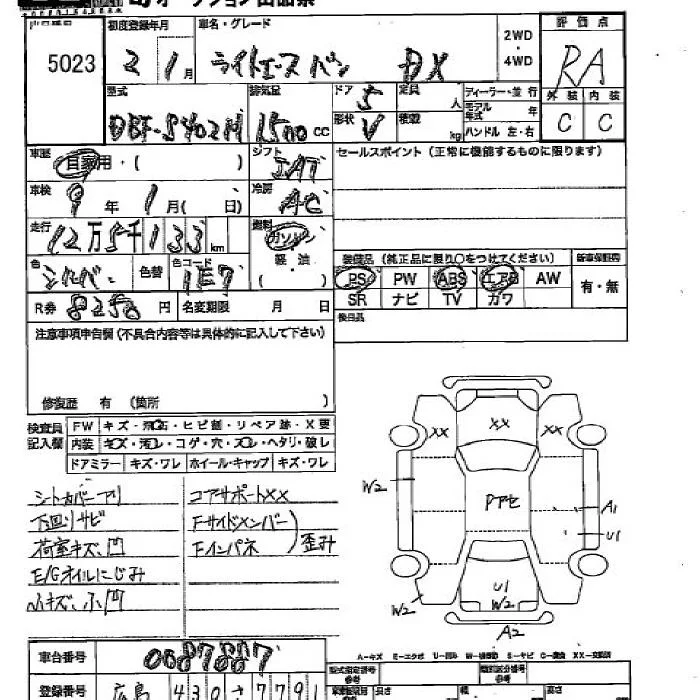 オークション出品票
5023
初度登録年月
2 1月
車名・グレード
ライトエースバン DX
2WD
・
4WD
評価点
RA
外装 内装
C C
型式
DBF-S402M
排気量
1500 CC
ドア 5
形状 V
定員 人
積載 kg
ディーラー・並行
モデル年式 年
ハンドル 左・右
車歴
自家用・( )
シフト
IAT
セールスポイント (正常に機能するものに限ります)
車検
9年 1月( 日)
冷房
AC
走行
12万5千133 km
燃料
ガソリン
軽油
( )
色
シルバー
色替
色コード
1E7
装備品 (純正品に限り○をつけてください)
新車保証書
PS PW ABS エアB AW
SR ナビ TV カワ
有・無
R券 8250 円
名変期限 月 日
後日品
注意事項申告欄 (不具合内容等は具体的に記入して下さい)
修復歴 有 (箇所
検査員
記入欄
FW キズ・飛石・ヒビ割・リペア跡・X要
内装 キズ・汚レ・コゲ・穴・スレ・ヘタリ・破レ
ドアミラー キズ・ワレ ホイール・キャップ キズ・ワレ
シートカバーアリ
下回リサビ
荷室キズ、凹
E/Gオイルにじみ
小キズ、小凹
コアサポートXX
Fサイドメンバー
Fインパネ
歪み
XX
XX
XX
W2
Pアセ
A1
U1
U1
W2
W2
A2
A-キズ E-エクボ U-凹み W-補修跡 S-サビ C-腐食 XX-交換済
車台番号
0087887
登録番号
広島 430 さ 7791
型式指定番号
参考
類別区分番号
参考
長さ
幅
高さ